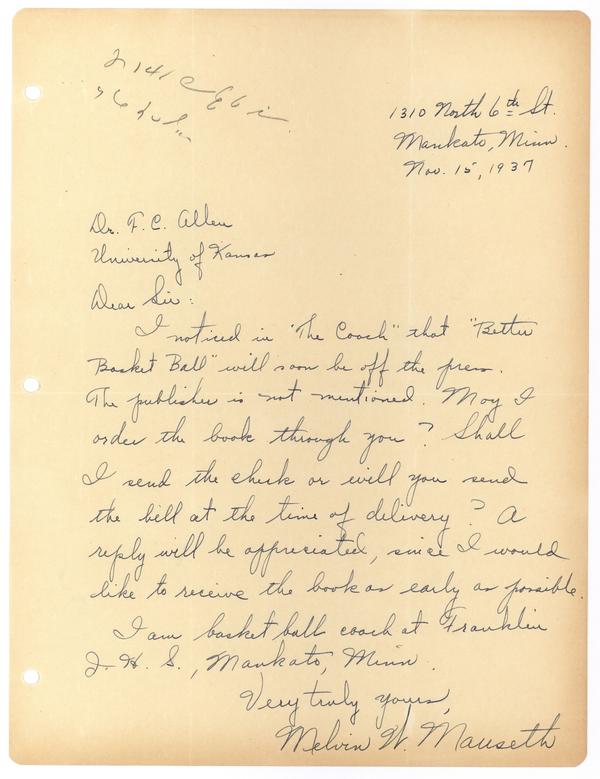 1310 North 6th St.
Mankato, Minn.
Nov. 15, 1937
Dr. F. C. Allen
University of Kansas
Dear Sir:
I noticed in "The Coach" that "Better
Basket Ball" will soon be off the press.
The publisher is not mentioned. May I
order the book through you? Shall
I send the check or will you send
the bill at the time of delivery? A
reply will be appreciated, since I would
like to receive the book as early as possible.
I am basket ball coach at Franklin
J. H. S., Mankato, Minn.
Very truly yours,
Melvin W. Mauseth